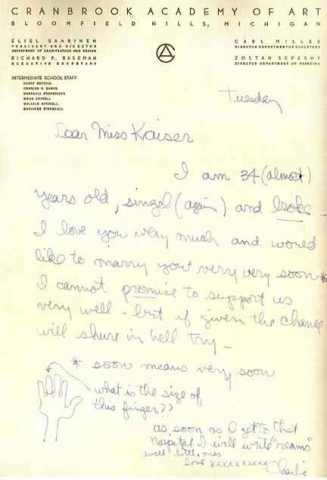 CRANBROOK ACADEMY OF ART
BLOOMFIELD HILLS, MICHIGAN
ELIEL SAARINEN
PRESIDENT AND DIRECTOR
DEPARTMENT OF ARCHITECTURE AND DESIGN
RICHARD P. RASEMAN
EXECUTIVE SECRETARY
CARL MILLES
DIRECTOR DEPARTMENT OF SCULPTURE
ZOLTAN SEPESHY
DIRECTOR DEPARTMENT OF PAINTING
INTERMEDIATE SCHOOL STAFF
HARRY BERTOIA
CHARLES O. EAMES
MARSHALL FREDERICKS
MAIJA GROTELL
WALLACE MITCHELL
MARIANNE STRENGELL
Tuesday
Dear Miss Kaiser
I am 34 (almost)
years old, singel (again) and broke -
I love you very much and would
like to marry you very very soon*
I cannot promise to support us
very well - but if given the chance
will shure in hell try -
* soon means very soon
what is the size of
this finger??
as soon as I get to that
hospital I will write "reams"
well little ones
love xxxxxxxxxx
Charlie